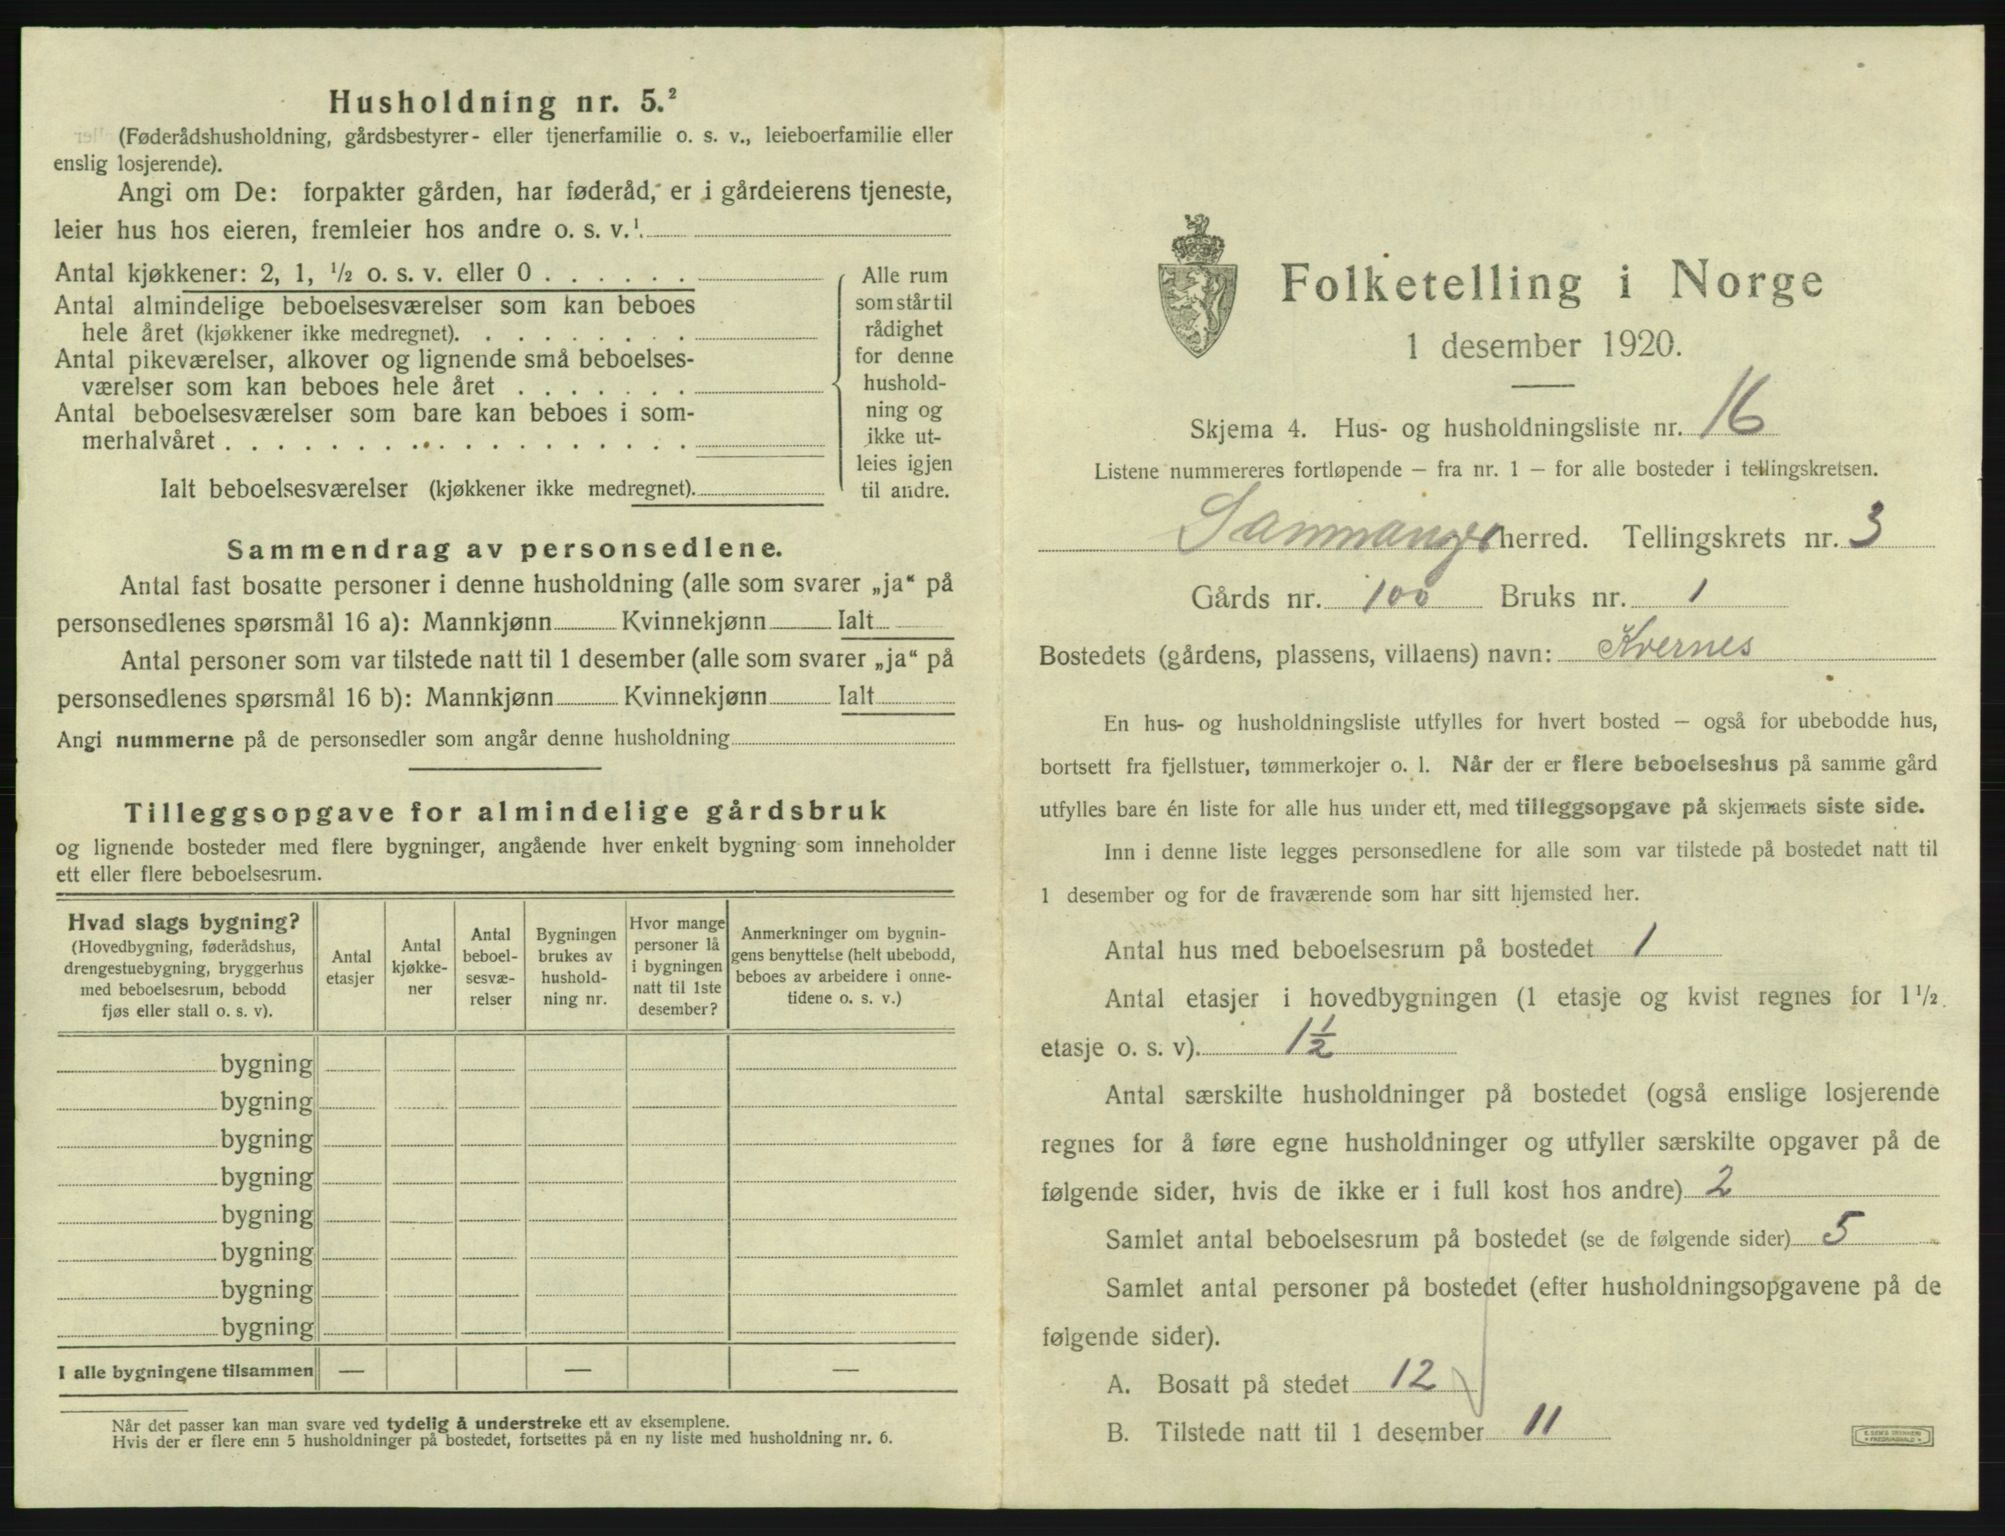 Husholdning nr. 5.²
(Føderådshusholdning, gårdsbestyrer- eller tjenerfamilie o. s. v., leieboerfamilie eller
enslig losjerende).
Angi om De: forpakter gården, har føderåd, er i gårdeierens tjeneste,
leier hus hos eieren, fremleier hos andre o. s. v.¹
Antal kjøkkener: 2, 1, ½ o. s. v. eller 0 . . . . . .
Antal almindelige beboelsesværelser som kan beboes
hele året (kjøkkener ikke medregnet). . . . . . . . .
Antal pikeværelser, alkover og lignende små beboelses-
værelser som kan beboes hele året . . . . . . .
Antal beboelsesværelser som bare kan beboes i som-
merhalvåret . . . . . . . . . . . . . . . . .
Ialt beboelsesværelser (kjøkkener ikke medregnet).
Alle rum
som står til
rådighet
for denne
hushold-
ning og
ikke ut-
leies igjen
til andre.
Sammendrag av personsedlene.
Antal fast bosatte personer i denne husholdning (alle som svarer „ja“ på
personsedlenes spørsmål 16 a): Mannkjønn Kvinnekjønn Ialt
Antal personer som var tilstede natt til 1 desember (alle som svarer „ja“ på
personsedlenes spørsmål 16 b): Mannkjønn Kvinnekjønn Ialt
Angi nummerne på de personsedler som angår denne husholdning
Tilleggsopgave for almindelige gårdsbruk
og lignende bosteder med flere bygninger, angående hver enkelt bygning som inneholder
ett eller flere beboelsesrum.
Hvad slags bygning?
(Hovedbygning, føderådshus,
drengestuebygning, bryggerhus
med beboelsesrum, bebodd
fjøs eller stall o. s. v).
Antal
etasjer
Antal
kjøkke-
ner
Antal
beboel-
sesvæ-
relser
Bygningen
brukes av
hushold-
ning nr.
Hvor mange
personer lå
i bygningen
natt til 1ste
desember?
Anmerkninger om bygnin-
gens benyttelse (helt ubebodd,
beboes av arbeidere i onne-
tidene o. s. v.)
bygning
bygning
bygning
bygning
bygning
bygning
bygning
bygning
I alle bygningene tilsammen — — —
Når det passer kan man svare ved tydelig å understreke ett av eksemplene.
Hvis der er flere enn 5 husholdninger på bostedet, fortsettes på en ny liste med husholdning nr. 6.
Folketelling i Norge
1 desember 1920.
Skjema 4. Hus- og husholdningsliste nr. 16
Listene nummereres fortløpende — fra nr. 1 — for alle bosteder i tellingskretsen.
Samnanger herred. Tellingskrets nr. 3
Gårds nr. 100 Bruks nr. 1
Bostedets (gårdens, plassens, villaens) navn: Kvernes
En hus- og husholdningsliste utfylles for hvert bosted — også for ubebodde hus,
bortsett fra fjellstuer, tømmerkojer o. l. Når der er flere beboelseshus på samme gård
utfylles bare én liste for alle hus under ett, med tilleggsopgave på skjemaets siste side.
Inn i denne liste legges personsedlene for alle som var tilstede på bostedet natt til
1 desember og for de fraværende som har sitt hjemsted her.
Antal hus med beboelsesrum på bostedet 1
Antal etasjer i hovedbygningen (1 etasje og kvist regnes for 1½
etasje o. s. v). 1½
Antal særskilte husholdninger på bostedet (også enslige losjerende
regnes for å føre egne husholdninger og utfyller særskilte opgaver på de
følgende sider, hvis de ikke er i full kost hos andre) 2
Samlet antal beboelsesrum på bostedet (se de følgende sider) 5
Samlet antal personer på bostedet (efter husholdningsopgavene på de
følgende sider).
A. Bosatt på stedet 12
B. Tilstede natt til 1 desember 11